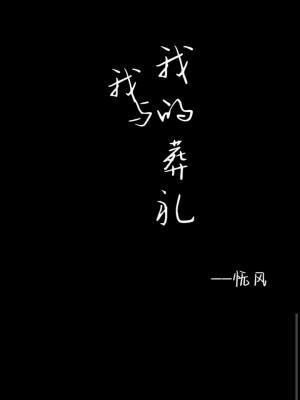 我与
我的葬礼
——怃风